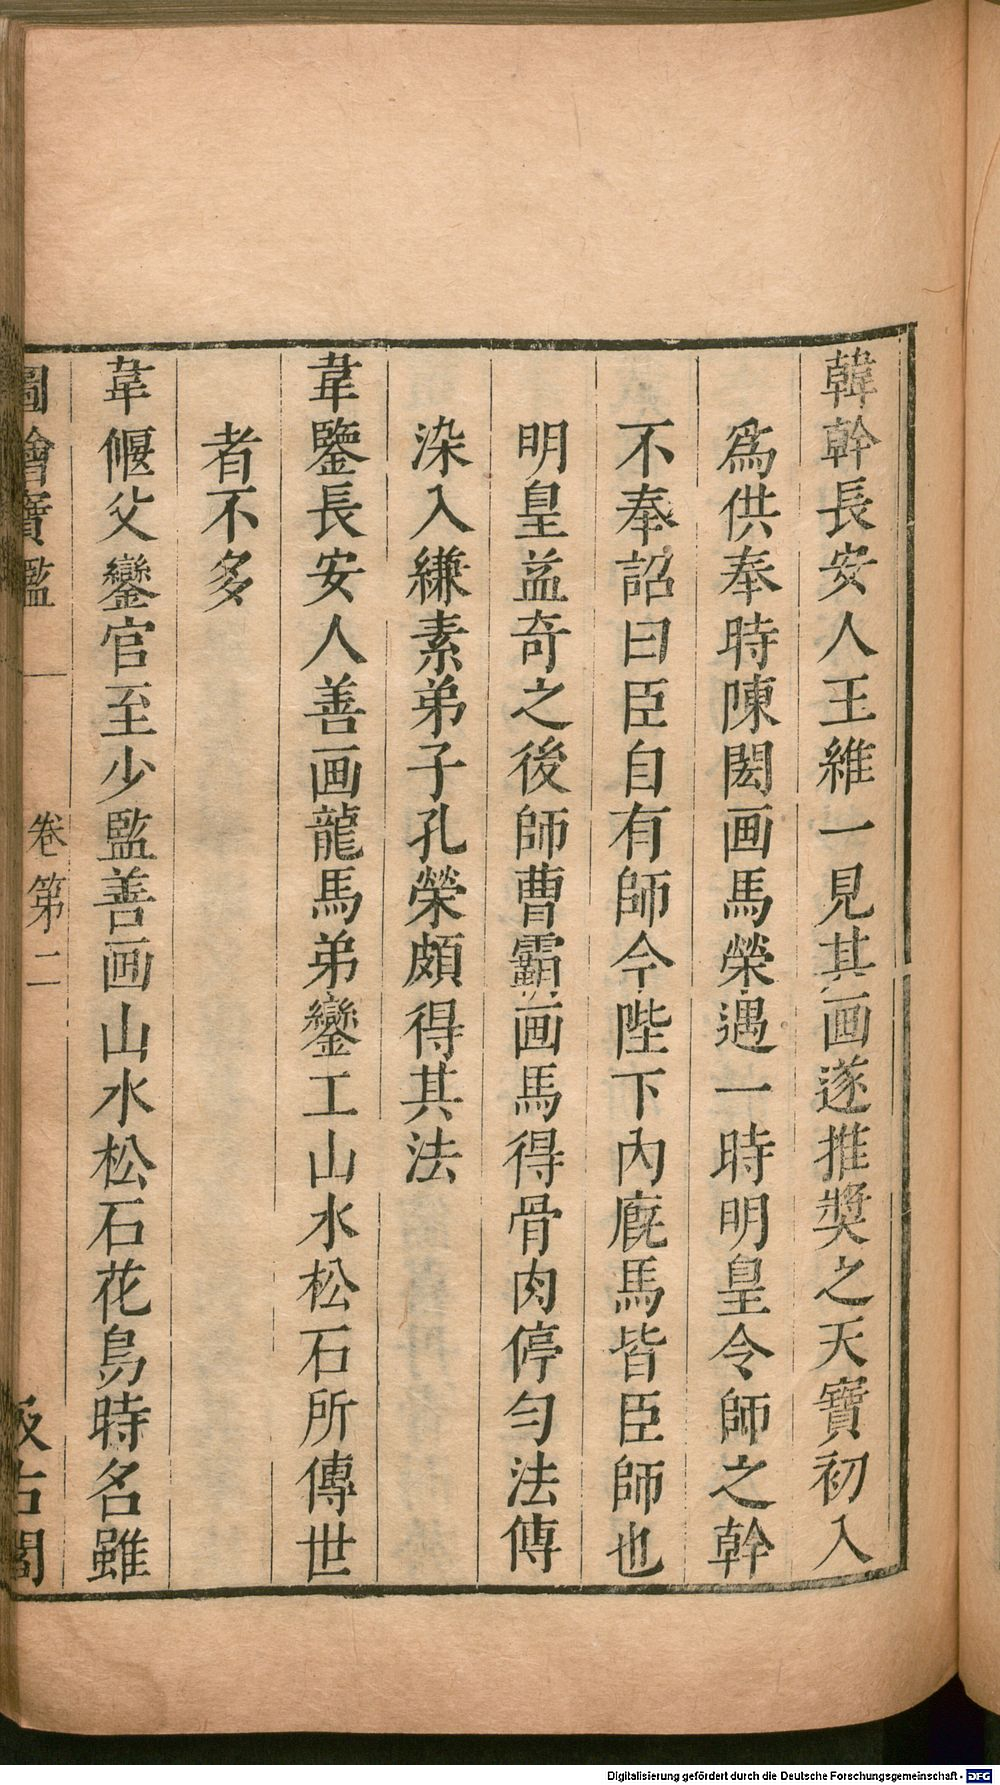 韓幹長安人王維一見其画遂推奬之天寶初入
爲供奉時陳閎画馬榮遇一時明皇令師之幹
不奉詔曰臣自有師今陛下內廐馬皆臣師也
明皇益奇之後師曹霸画馬得骨肉停勻法傳
染入縑素弟子孔榮頗得其法
韋鑒長安人善画龍馬弟鑾工山水松石所傳世
者不多
韋偃父鑾官至少監善画山水松石花鳥時名雖
圖繪寶鑑 卷第二 汲古閣
Digitalisierung gefördert durch die Deutsche Forschungsgemeinschaft - DFG